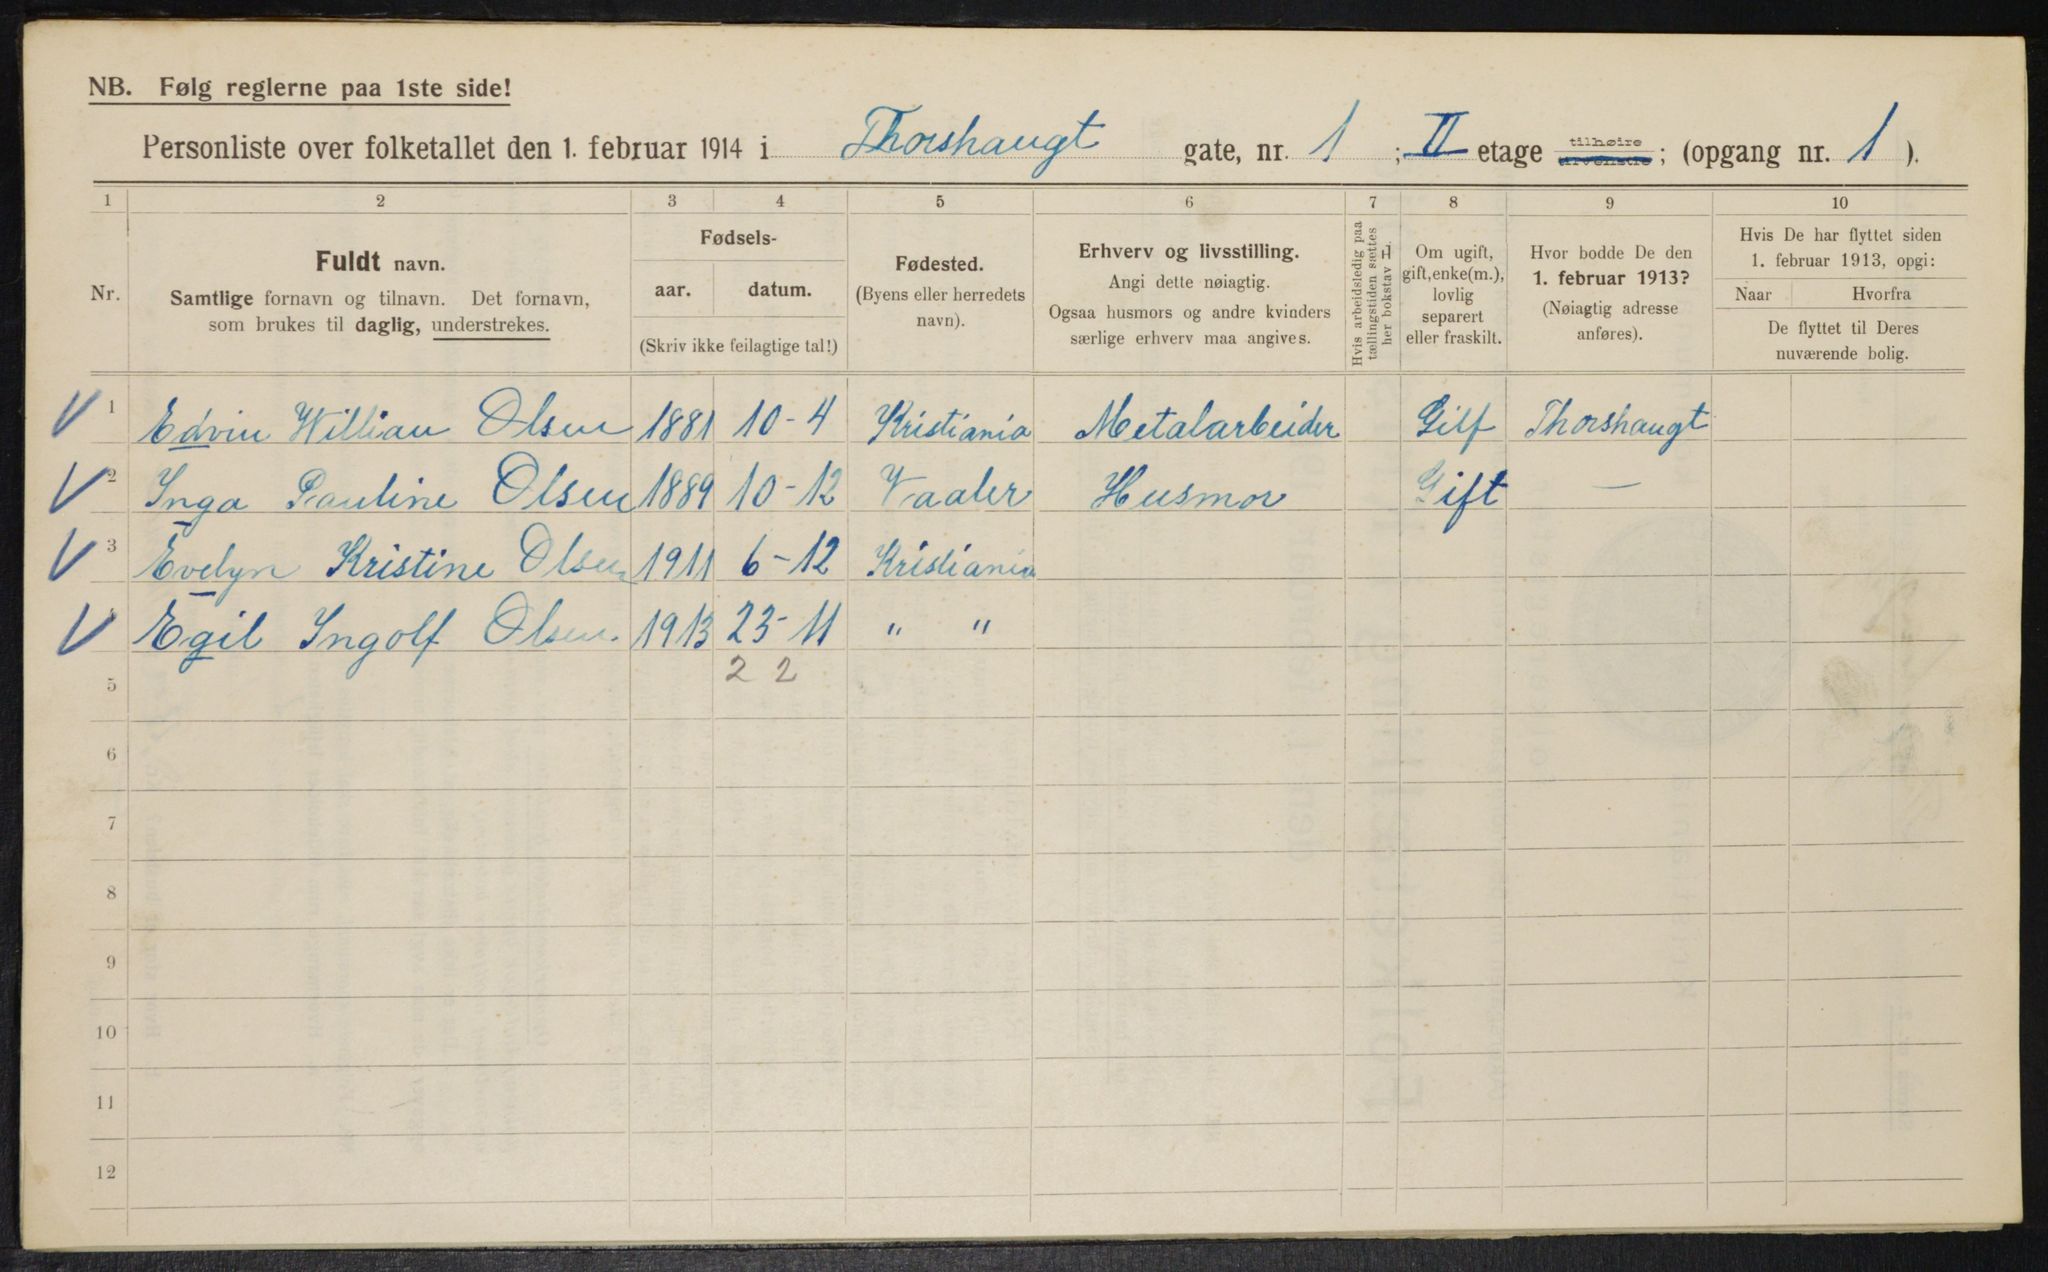 NB. Følg reglerne paa 1ste side!
Personliste over folketallet den 1. februar 1914 i Thorshaugt gate, nr. 1 ; II etage tilhøire ; (opgang nr. 1 ).
1 2 3 4 5 6 7 8 9 10
Nr.
Fuldt navn.
Samtlige fornavn og tilnavn. Det fornavn,
som brukes til daglig, understrekes.
Fødsels-
aar. datum.
(Skriv ikke feilagtige tal!)
Fødested.
(Byens eller herredets
navn).
Erhverv og livsstilling.
Angi dette nøiagtig.
Ogsaa husmors og andre kvinders
særlige erhverv maa angives.
Hvis arbeidsledig paa
tællingstiden sættes
her bokstav L.
Om ugift,
gift, enke(m.),
lovlig
separert
eller fraskilt.
Hvor bodde De den
1. februar 1913?
(Nøiagtig adresse
anføres).
Hvis De har flyttet siden
1. februar 1913, opgi:
Naar Hvorfra
De flyttet til Deres
nuværende bolig.
1 Edvin William Olsen 1881 10-4 Kristiania Metalarbeider Gift Thorshaugt
2 Inga Pauline Olsen 1889 10-12 Vaaler Husmor Gift —
3 Evelyn Kristine Olsen 1911 6-12 Kristiania
Egil Ingolf Olsen. 1913 23-11 " "
2 2
5
6
7
8
9
10
11
12